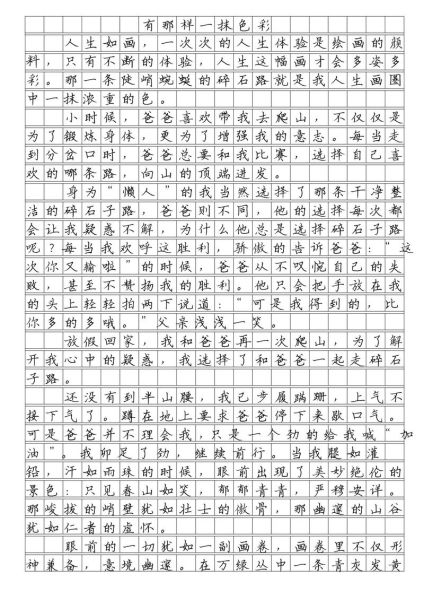 有那样一抹色彩
人生如画，一次次的人生体验是绘画的颜
料，只有不断的体验，人生这幅画才会多姿多
彩。那一条陡峭蜿蜒的碎石路就是我人生画图
中一抹浓重的色。
小时候，爸爸喜欢带我去爬山，不仅仅是
为了锻炼身体，更为了增强我的意志。每当走
到分岔口时，爸爸总要和我比赛，选择自己喜
欢的哪条路，向山的顶端进发。
身为“懒人”的我当然选择了那条干净整
洁的碎石子路，爸爸则不同，他的选择每次都
会让我疑惑不解，为什么他总是选择碎石子路
呢？每当我欢呼这胜利，骄傲的告诉爸爸：“这
次你又输啦”的时候，爸爸从不叹惋自己的失
败，甚至不赞扬我的胜利。他只会把手放在我
的头上轻轻拍两下说道：“可是我得到的，比
你多的多哦。”父亲浅浅一笑。
放假回家，我和爸爸再一次爬山，为了解
开我心中的疑惑，我选择了和爸爸一起走碎石
子路。
还没有到半山腰，我已步履蹒跚，上气不
接下气了。蹲在地上要求爸爸停下来歇口气。
可是爸爸并不理会我，只是一个劲的给我喊“加
油”。我卯足了劲，继续前行。当我腿如灌
铅，汗如雨珠的时候，眼前出现了美妙绝伦的
景色：只见春山如笑，郁郁青青，严穆安详。
那峻拔的峭壁犹如壮士的傲骨，那幽邃的山谷
犹如仁者的虚怀。
眼前的一切犹如一副画卷，画卷里不仅形
神兼备，意境幽邃。在万绿丛中一条青灰发黄